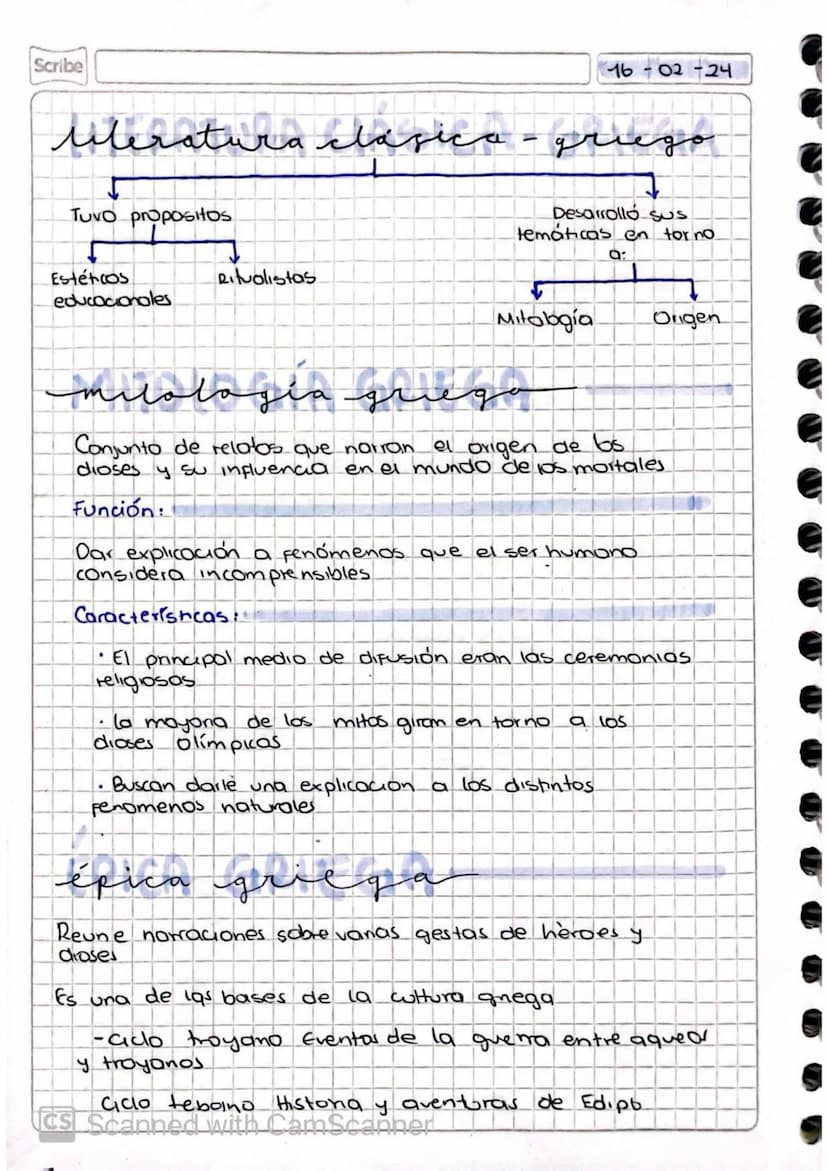 Scribe
16-02-24
LITERATURA CLÁSICA - GRIEGA
literatura clásica - griega
Tuvo propositos
Desarrolló sus
temáticas en torno
a:
Estéticos
educacionales
Ritualistas
Mitología
Origen
MITOLOGÍA GRIEGA
mitología griega
Conjunto de relatos que narran el origen de los
dioses y su influencia en el mundo de los mortales
Función:
Dar explicación a fenómenos que el ser humano
considera incomprensibles
Características:
· El principal medio de difusión eran las ceremonias
religiosas
· la mayoria de los mitos giran en torno a los
dioses olímpicos
· Buscan darle una explicacion a los distintos
fenomenos naturales
ÉPICA GRIEGA
épica griega
Reune narraciones sobre varias gestas de hèroes y
dioses
Es una de las bases de la cultura griega
-ciclo troyano Eventos de la guerra entre aqueos
y troyanos
Ciclo tebaino Historia y aventuras de Edipo
CS Scanned with CamScanner